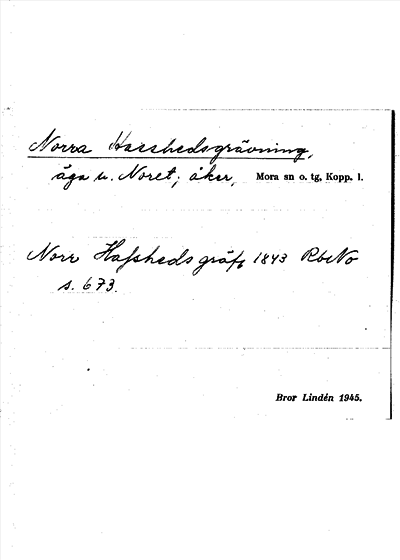 Norra Hasshedsgrävning,
äga u. Noret; åker, Mora sn o. tg, Kopp. l.
Norr Hafsheds gräf, 1843 RbNo
s. 673.
Bror Lindén 1945.